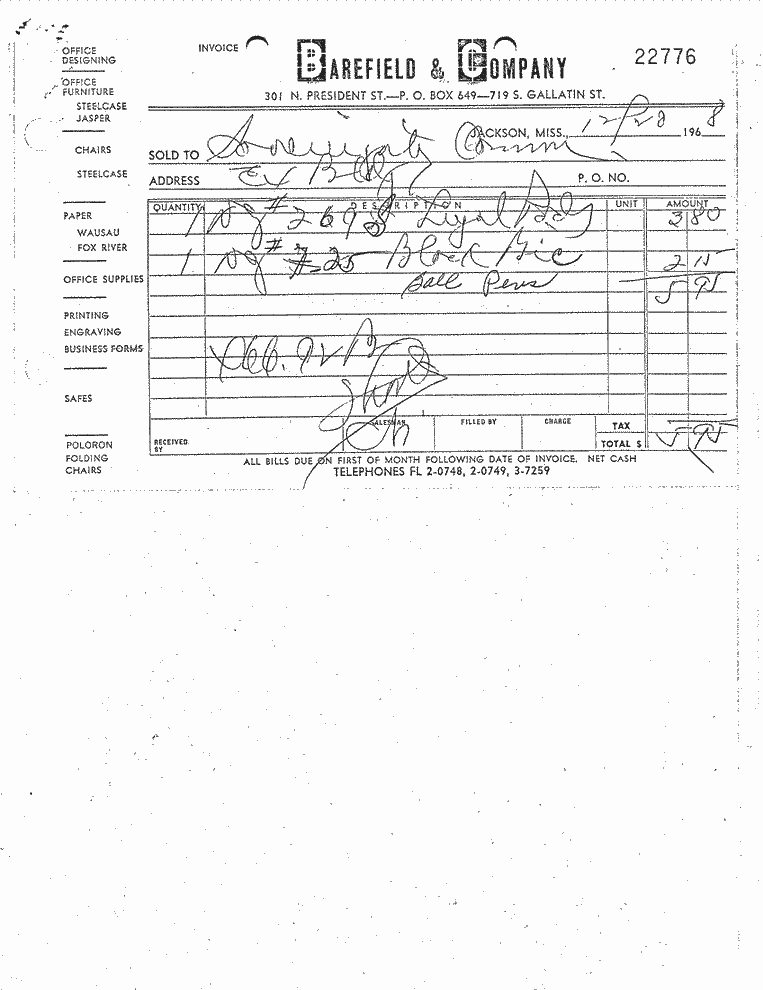 INVOICE
BAREFIELD & COMPANY
22776
301 N. PRESIDENT ST.—P. O. BOX 649—719 S. GALLATIN ST.
OFFICE
DESIGNING
OFFICE
FURNITURE
STEELCASE
JASPER
CHAIRS
STEELCASE
PAPER
WAUSAU
FOX RIVER
OFFICE SUPPLIES
PRINTING
ENGRAVING
BUSINESS FORMS
SAFES
POLORON
FOLDING
CHAIRS
JACKSON, MISS., 12/28 1968
SOLD TO Sovereignty Comm
ADDRESS P. O. NO.
QUANTITY DESCRIPTION UNIT AMOUNT
1 # 2698 Legal Pads 3 80
1 # 25 Black Bic 2 15
Ball Pens 5 95
RECEIVED
BY
SALESMAN FILLED BY CHARGE TAX
TOTAL $ 5 95
ALL BILLS DUE ON FIRST OF MONTH FOLLOWING DATE OF INVOICE. NET CASH
TELEPHONES FL 2-0748, 2-0749, 3-7259